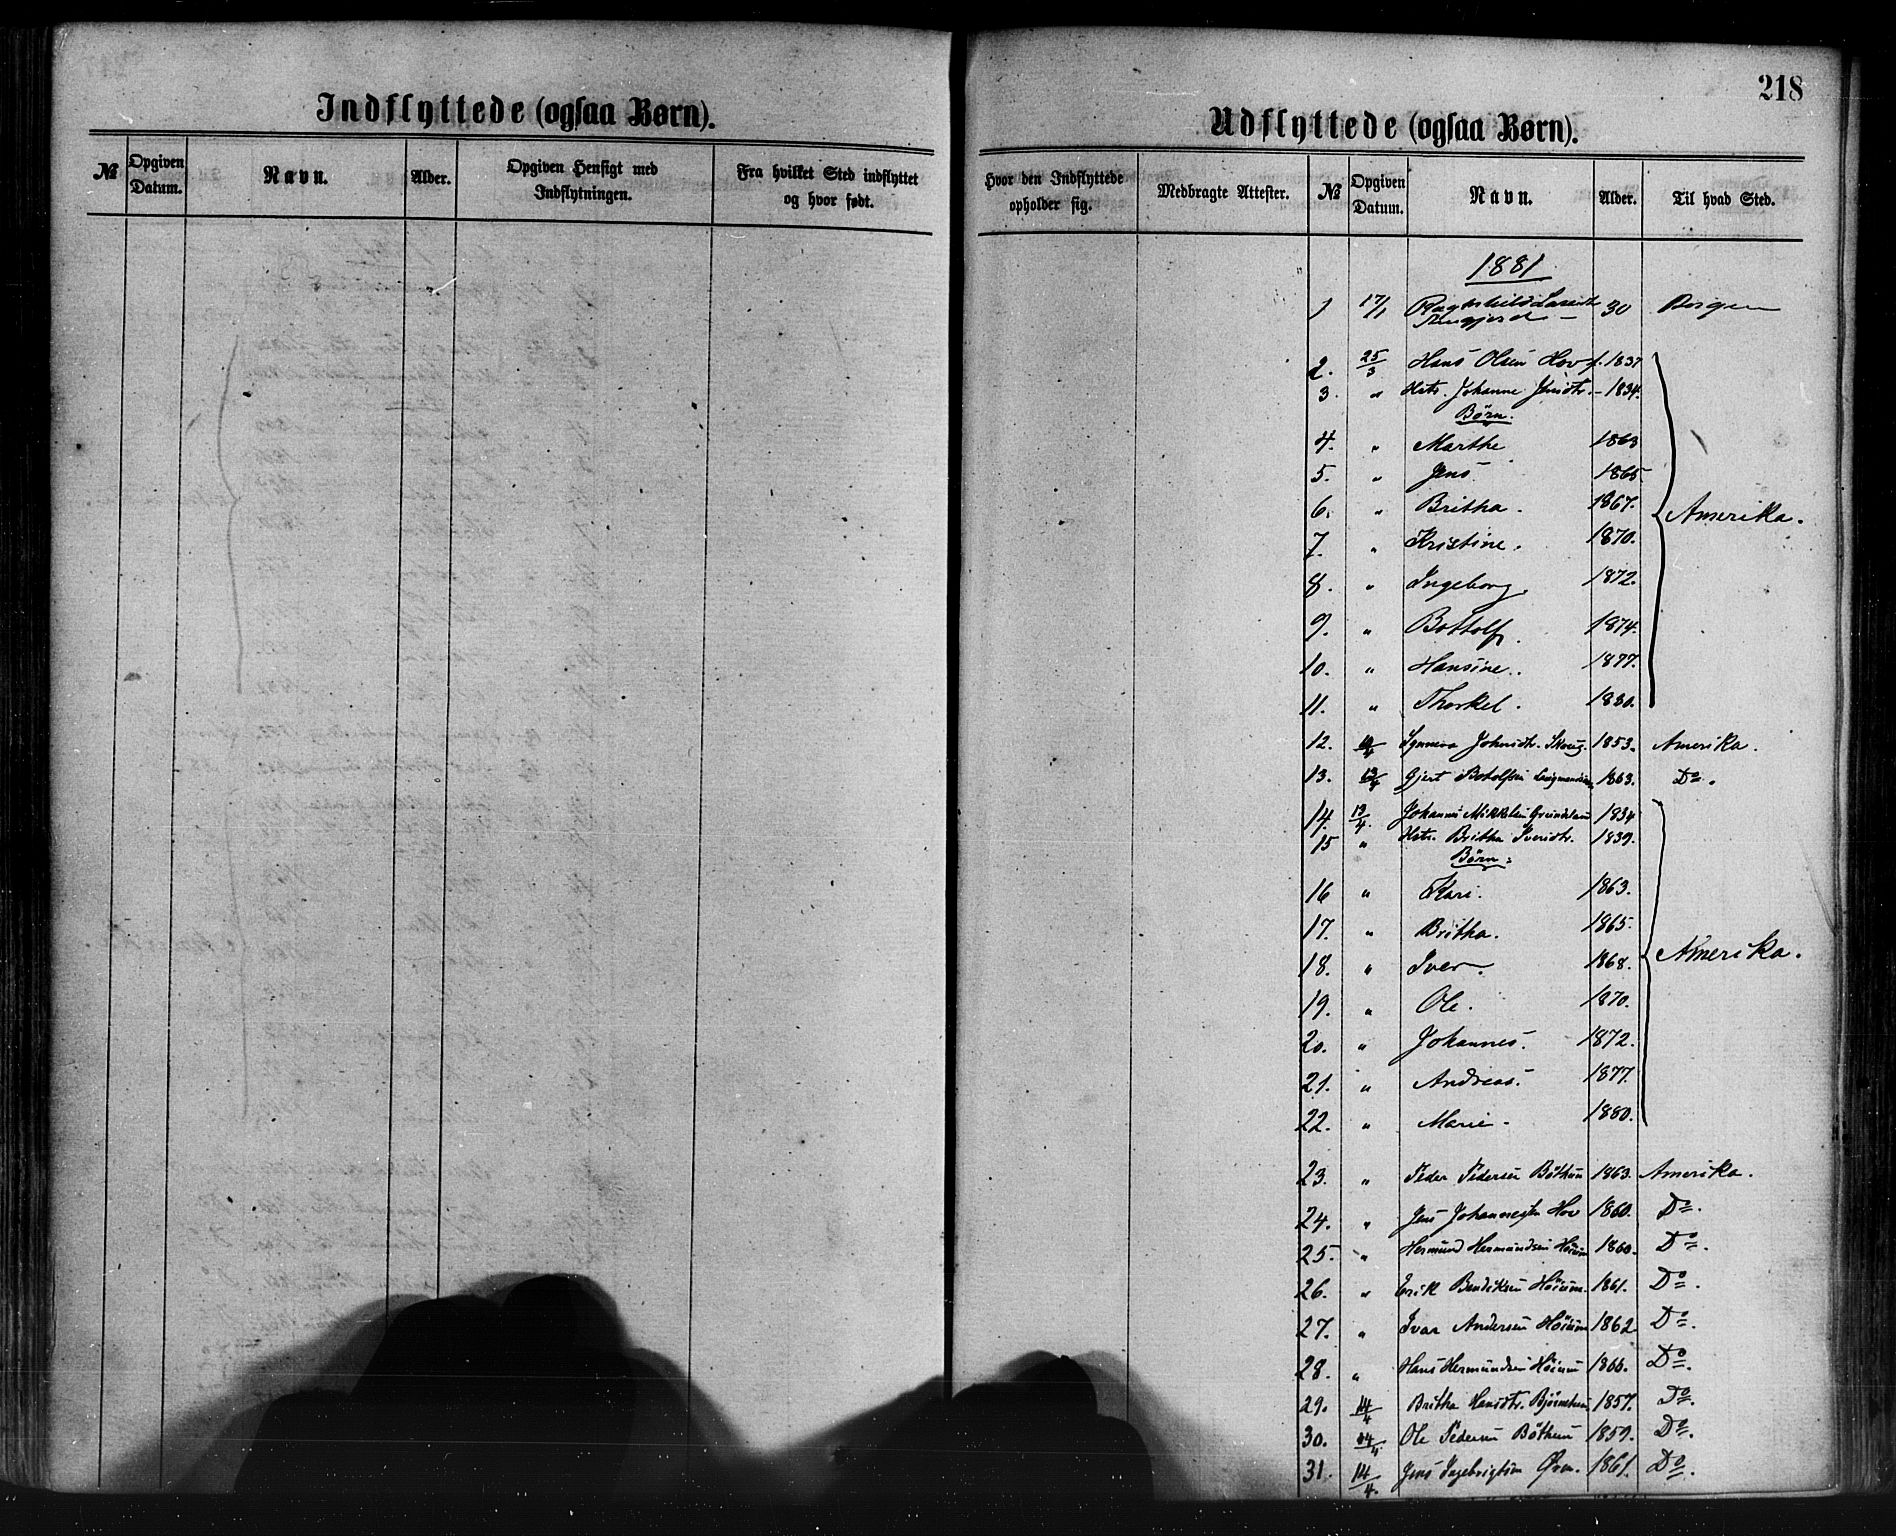 218
Indflyttede (ogsaa Børn).
№ Opgiven Datum. Navn. Alder. Opgiven Hensigt med Indflytningen. Fra hvilket Sted indflyttet og hvor født.
Udflyttede (ogsaa Børn).
Hvor den Indflyttede opholder sig. Medbragte Attester. № Opgiven Datum. Navn. Alder. Til hvad Sted.
1881
1 17/1 Ragnhild 30 Bergen
2. 25/3 Hans Olsen Hov f. 1837
3. " Hstr. Johanne Jensdtr. - 1834.
Børn.
4. " Marthe 1863
5. " Jens 1865
6. " Britha. 1867.
7. " Kristine. 1870.
8. " Ingeborg. 1872.
9. " Bottolf. 1874.
10. " Hansine. 1877.
11. " Thorkel. 1880.
Amerika.
12. Synneva Johnsdtr. 1853. Amerika.
13. 13/4 Gjert Botolfsen 1863. Do.
14. 13/4. Johannes Mikkelsen 1834
15 " Hstr. Britha Iversdtr. 1839.
Børn:
16 " Kari. 1863.
17. " Britha. 1865.
18. " Iver. 1868.
19. " Ole. 1870.
20. " Johannes. 1872.
21. " Andreas. 1877.
22. " Marie. 1880.
Amerika.
23. " Peder Pedersen Böthun 1863. Amerika.
24. " Jens Johannesen Hov 1860. Do.
25. " Hermund Hermundsen Höium 1860. Do.
26. " Erik Bendiksen Höium. 1861. Do.
27. " Ivar Andersen Höium 1862 Do.
28. " Hans Hermundsen Höium 1866. Do.
29. 14/4 Britha Hansdtr. 1857. Do.
30. 14/4 Ole Pedersen Böthun 1859. Do.
31. 14/4. Jens Ingebrigtsen 1861. Do.